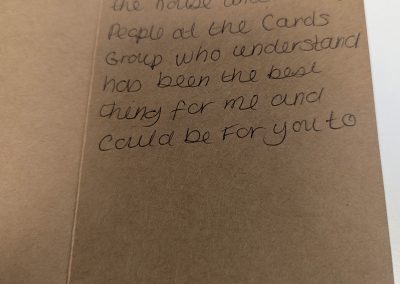 the house and
People at the Cards
Group who understand
has been the best
thing for me and
Could be For you to